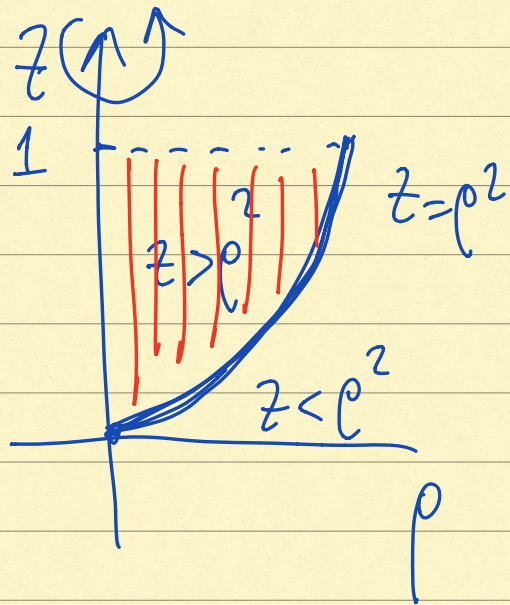 z
1
z=ρ²
z>ρ²
z<ρ²
ρ